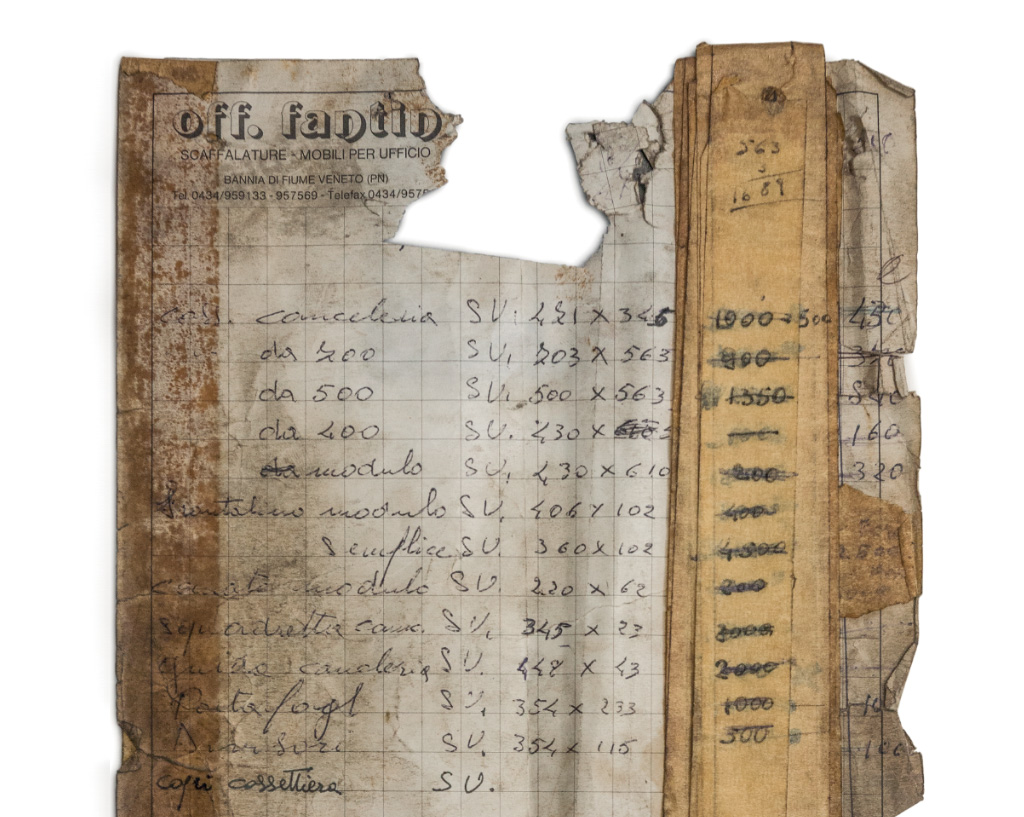 off. fantin
SCAFFALATURE - MOBILI PER UFFICIO
BANNIA DI FIUME VENETO (PN)
Tel. 0434/959133 - 957569 - Telefax 0434/957
563
3
1689
cass. cancelleria SV. 421 x 345 1000 500 450
da 200 SV. 203 x 563 800
da 500 SV. 500 x 563 1350
da 400 SV. 430 x 160
da modulo SV. 430 x 610 800 320
Frontalino modulo SV. 406 x 102 400
Semplice SV. 360 x 102 4500
modulo SV. 220 x 62 200
squadretta canc. SV. 345 x 23 2000
guida SV. 448 x 43 2000
Portafogl SV. 354 x 233 1000
Divisori SV. 354 x 115 500
copri cassettiera SV.